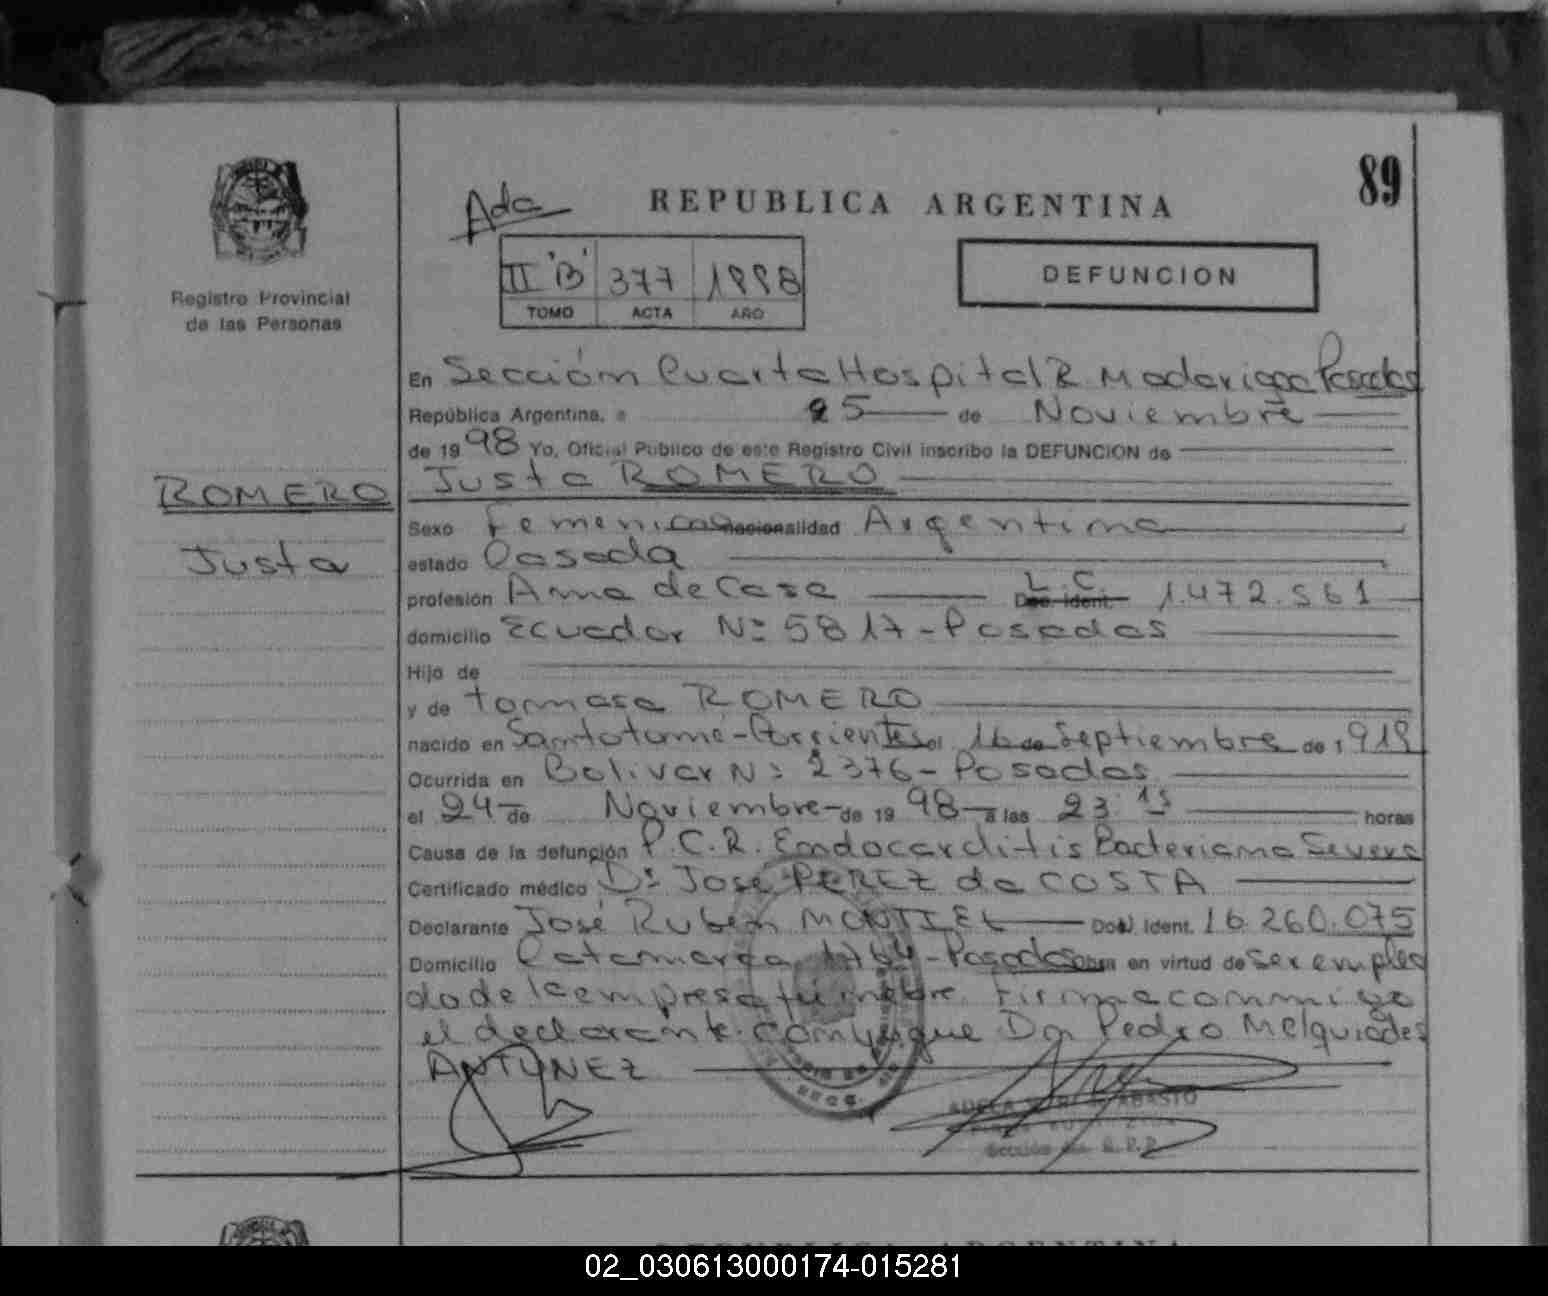 89
Ada
REPUBLICA ARGENTINA
II "B" 377 1998
TOMO ACTA AÑO
DEFUNCION
Registro Provincial
de las Personas
En Sección Cuarta Hospital R. Madariaga Posadas
República Argentina, a 25 de Noviembre
de 1998 Yo, Oficial Público de este Registro Civil inscribo la DEFUNCION de
Justa ROMERO
ROMERO
Justa
Sexo Femenino nacionalidad Argentina
estado Casada
profesión Ama de Casa L.C. Doc. Ident. 1.472.561
domicilio Ecuador Nº 5817 - Posadas
Hijo de
y de Tomasa ROMERO
nacido en Santo tomé - Corrientes el 16 de Septiembre de 1919
Ocurrida en Bolivar Nº 2376 - Posadas
el 24 de Noviembre de 1998 a las 23:15 horas
Causa de la defunción P.C.R. Endocarditis Bacteriana Severa
Certificado médico Dr. José PEREZ da COSTA
Declarante José Rubén MONTIEL Ident. 16.260.075
Domicilio Catamarca - Posadas Obra en virtud de ser emplea
do de la empresa fúnebre. Firma conmigo
el declarante. conyugue Don Pedro Melquiades
ANTUNEZ
REPUBLICA ARGENTINA
02_030613000174-015281